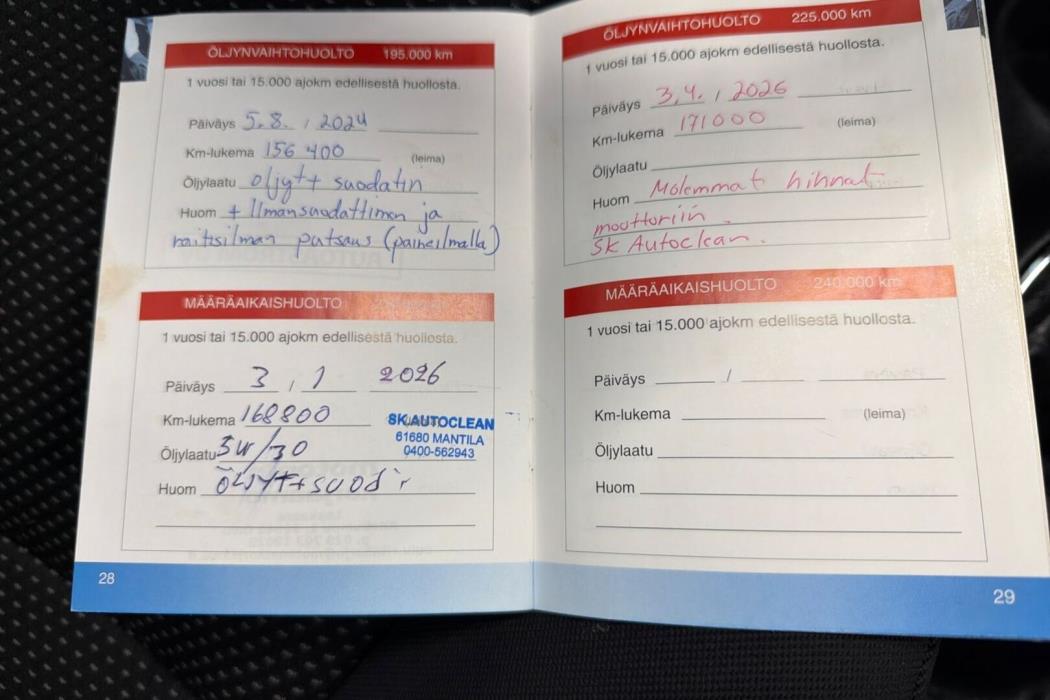 ÖLJYNVAIHTOHUOLTO 195.000 km
1 vuosi tai 15.000 ajokm edellisestä huollosta.
Päiväys 5.8. / 2024
Km-lukema 156 400 (leima)
Öljylaatu öljyt+ suodatin
Huom + Ilmansuodattimen ja
raitisilman putsaus (paineilmalla)
MÄÄRÄAIKAISHUOLTO
1 vuosi tai 15.000 ajokm edellisestä huollosta.
Päiväys 3 / 1 2026
Km-lukema 168800
SK AUTOCLEAN
61680 MANTILA
0400-562943
Öljylaatu 5W/30
Huom ÖLJYT+SUOD
28
ÖLJYNVAIHTOHUOLTO 225.000 km
1 vuosi tai 15.000 ajokm edellisestä huollosta.
Päiväys 3.4. / 2026
Km-lukema 171000 (leima)
Öljylaatu
Huom Molemmat hihnat
moottoriin.
SK Autoclean.
MÄÄRÄAIKAISHUOLTO 240.000 km
1 vuosi tai 15.000 ajokm edellisestä huollosta.
Päiväys /
Km-lukema (leima)
Öljylaatu
Huom
29